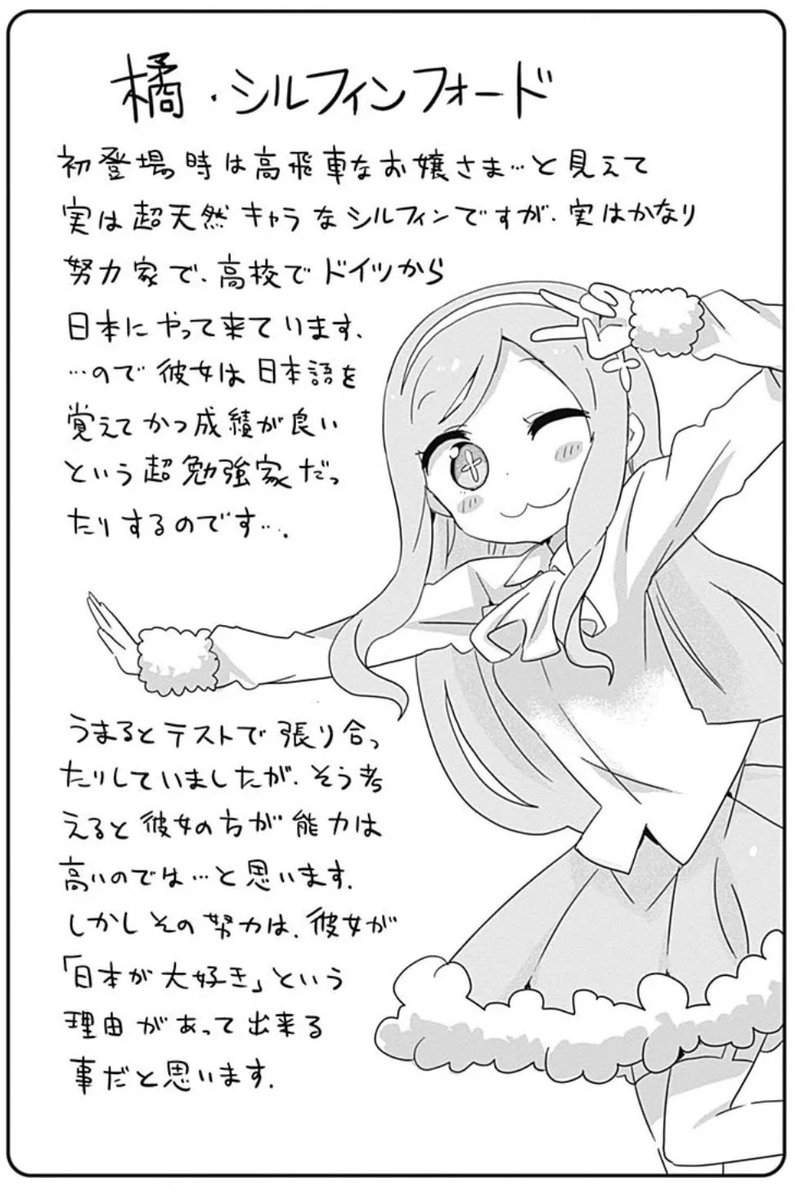 橘・シルフィンフォード
初登場時は高飛車なお嬢さま…と見えて
実は超天然キャラなシルフィンですが、実はかなり
努力家で、高校でドイツから
日本にやって来ています.
…ので彼女は日本語を
覚えてかつ成績が良い
という超勉強家だっ
たりするのです….
うまるとテストで張り合っ
たりしていましたが、そう考
えると彼女の方が能力は
高いのでは…と思います.
しかしその努力は、彼女が
「日本が大好き」という
理由があって出来る
事だと思います.